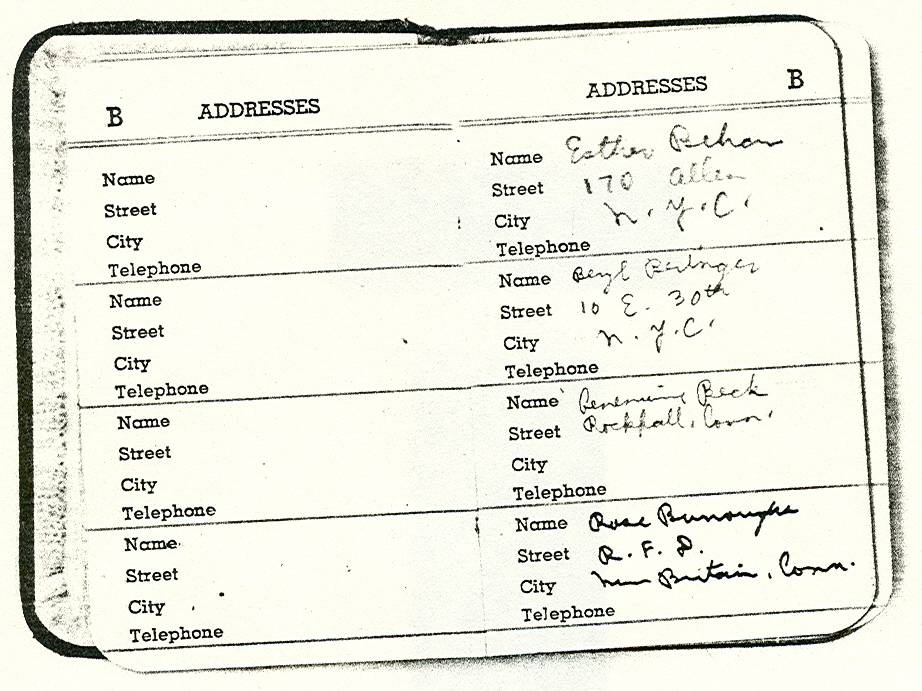 B ADDRESSES
Name
Street
City
Telephone
Name
Street
City
Telephone
Name
Street
City
Telephone
Name
Street
City
Telephone
ADDRESSES B
Name Esther Behan
Street 170 Allen
City N.Y.C.
Telephone
Name Beryl Beringer
Street 10 E. 30th
City N.Y.C.
Telephone
Name Beck
Street Rockfall, Conn.
City
Telephone
Name Rose Burroughs
Street R.F.D.
City New Britain, Conn.
Telephone